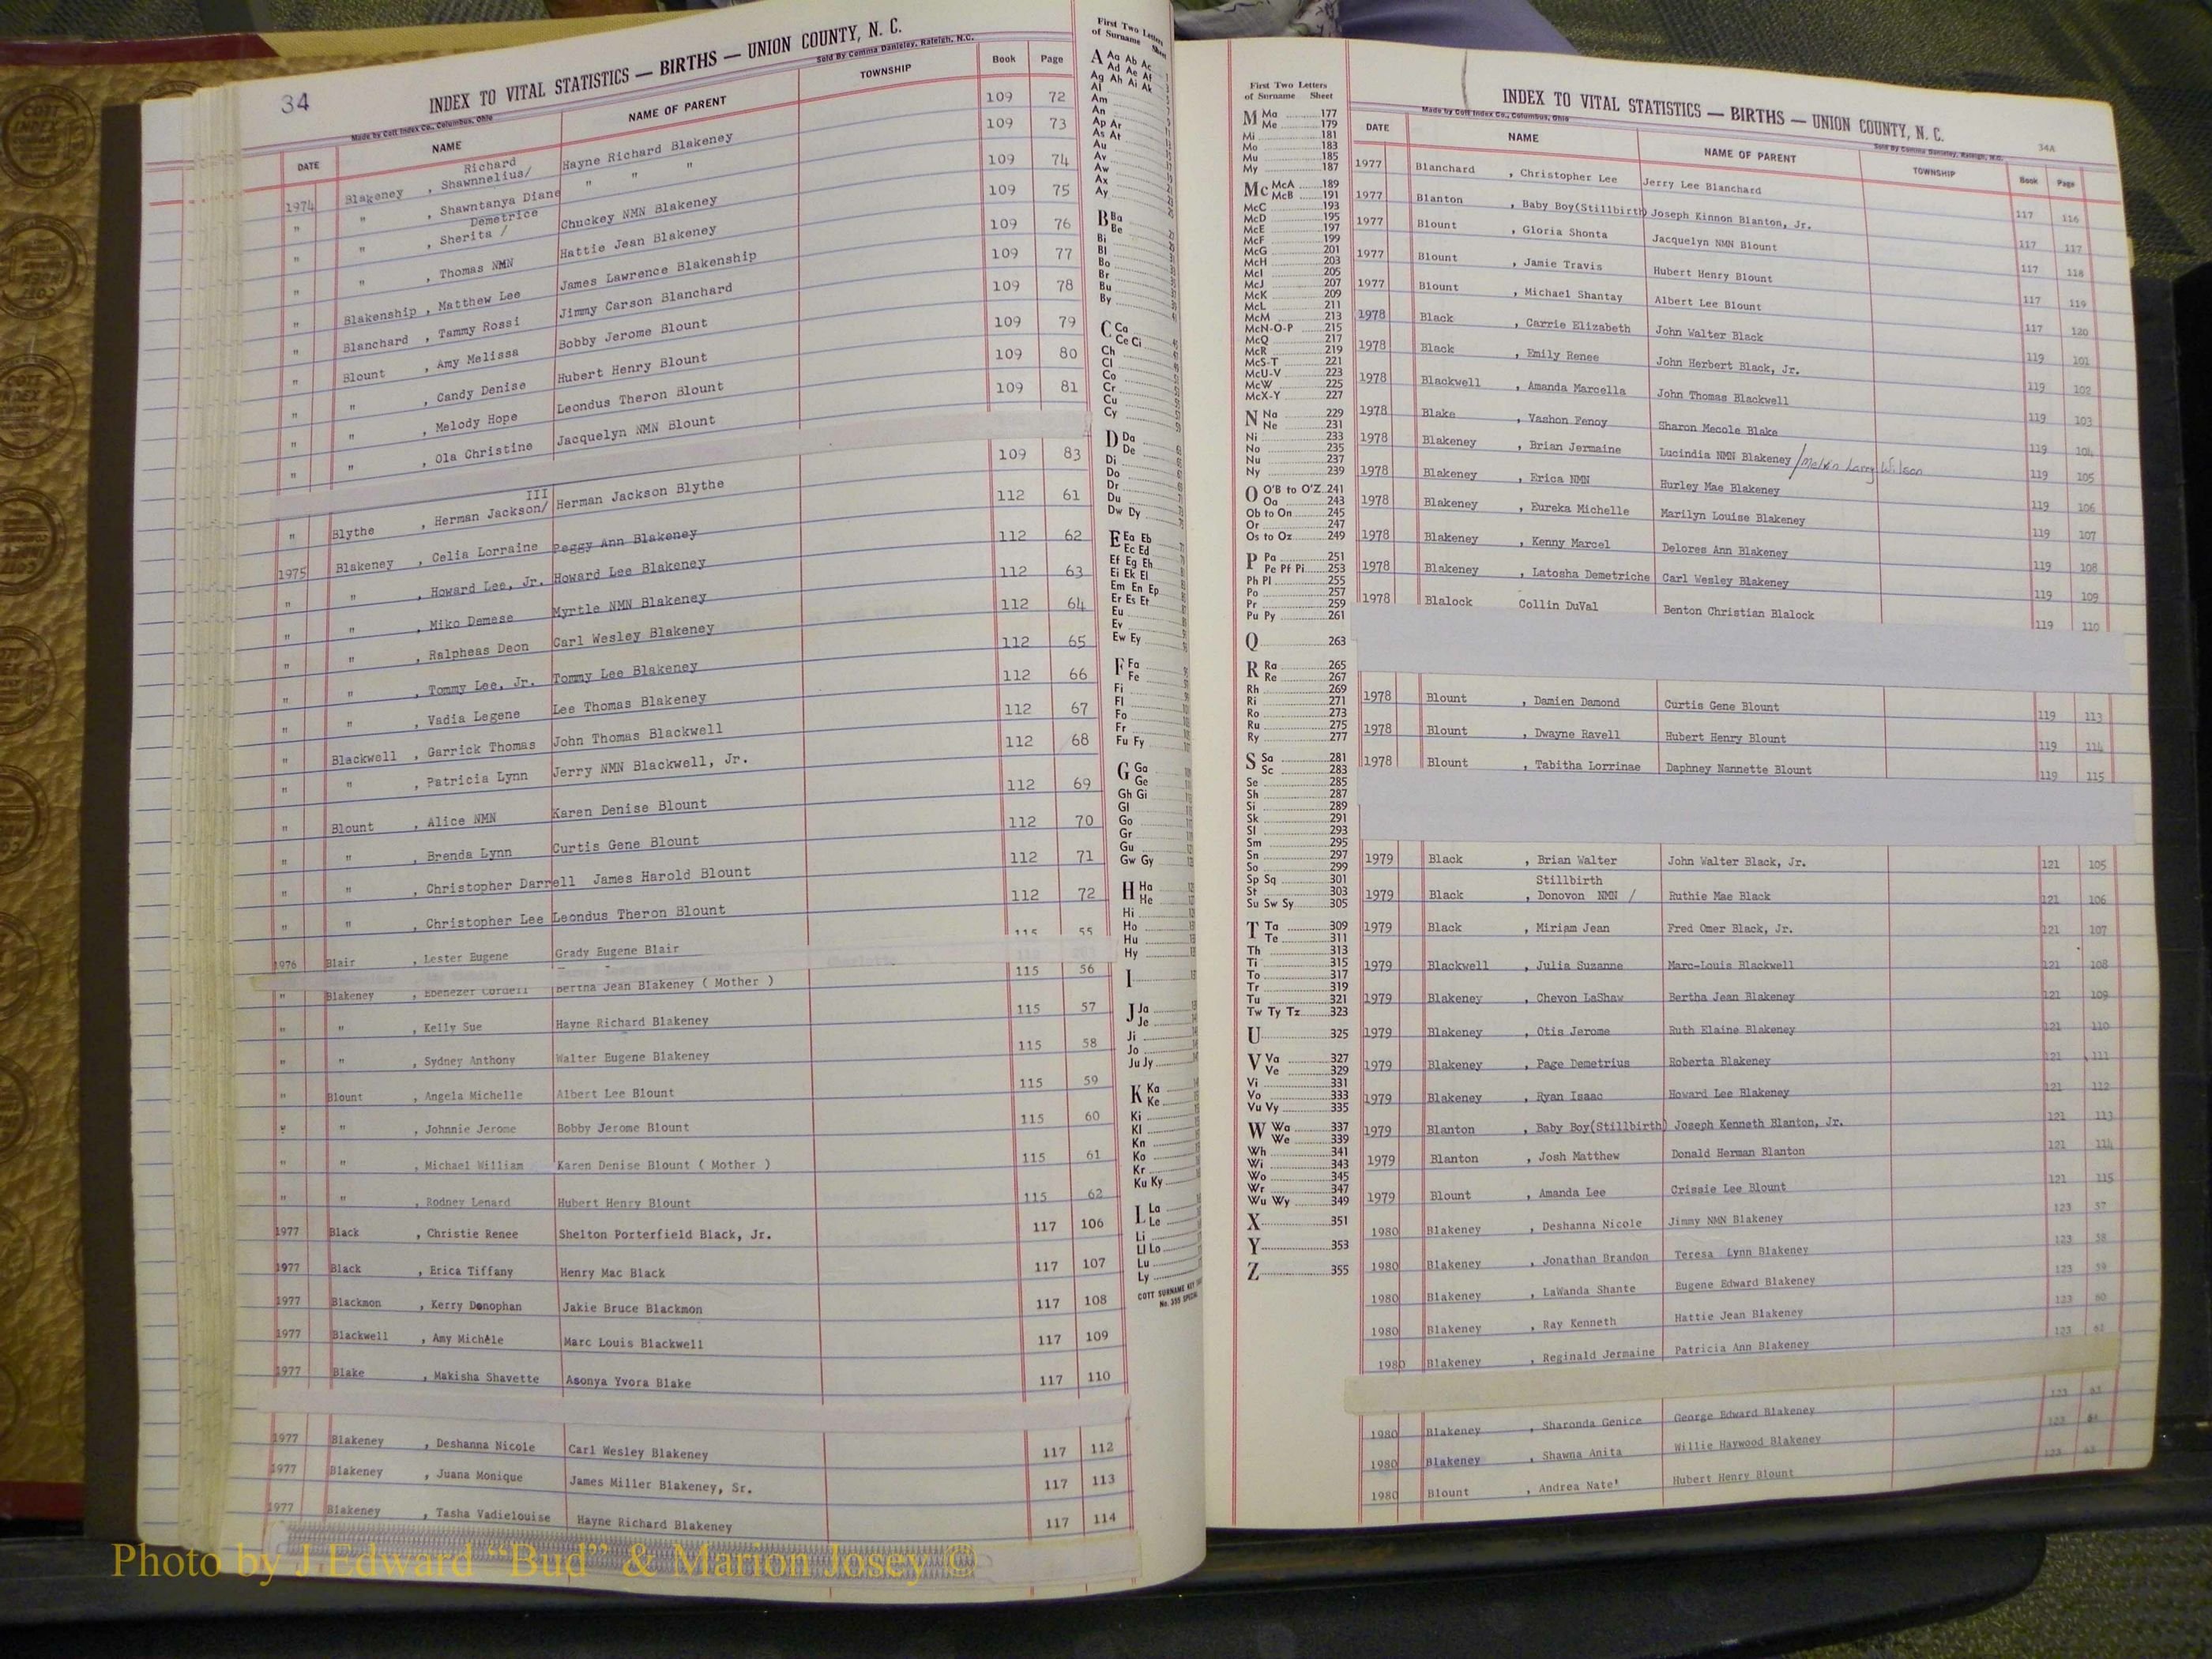 34
INDEX TO VITAL STATISTICS — BIRTHS — UNION COUNTY, N. C.
Made by Cott Index Co., Columbus, Ohio
Sold By Comma Danieley, Raleigh, N.C.
DATE NAME NAME OF PARENT TOWNSHIP Book Page
Richard
1974 Blakeney , Shawnnelius/ Hayne Richard Blakeney 109 72
" " , Shawntanya Diane " " " 109 73
Demetrice
" " , Sherita / Chuckey NMN Blakeney 109 74
" " , Thomas NMN Hattie Jean Blakeney 109 75
" Blakenship , Matthew Lee James Lawrence Blakenship 109 76
" Blanchard , Tammy Rossi Jimmy Carson Blanchard 109 77
" Blount , Amy Melissa Bobby Jerome Blount 109 78
" " , Candy Denise Hubert Henry Blount 109 79
" " , Melody Hope Leondus Theron Blount 109 80
" " , Ola Christine Jacquelyn NMN Blount 109 81
III
" Blythe , Herman Jackson/ Herman Jackson Blythe 109 83
1975 Blakeney , Celia Lorraine Peggy Ann Blakeney 112 61
" " , Howard Lee, Jr. Howard Lee Blakeney 112 62
" " , Miko Demese Myrtle NMN Blakeney 112 63
" " , Ralpheas Deon Carl Wesley Blakeney 112 64
" " , Tommy Lee, Jr. Tommy Lee Blakeney 112 65
" " , Vadia Legene Lee Thomas Blakeney 112 66
" Blackwell , Garrick Thomas John Thomas Blackwell 112 67
" " , Patricia Lynn Jerry NMN Blackwell, Jr. 112 68
" Blount , Alice NMN Karen Denise Blount 112 69
" " , Brenda Lynn Curtis Gene Blount 112 70
" " , Christopher Darrell James Harold Blount 112 71
" " , Christopher Lee Leondus Theron Blount 112 72
1976 Blair , Lester Eugene Grady Eugene Blair 115 55
" Blakeney , Ebenezer Cordell Bertha Jean Blakeney ( Mother ) 115 56
" " , Kelly Sue Hayne Richard Blakeney 115 57
" " , Sydney Anthony Walter Eugene Blakeney 115 58
" Blount , Angela Michelle Albert Lee Blount 115 59
" " , Johnnie Jerome Bobby Jerome Blount 115 60
" " , Michael William Karen Denise Blount ( Mother ) 115 61
" " , Rodney Lenard Hubert Henry Blount 115 62
1977 Black , Christie Renee Shelton Porterfield Black, Jr. 117 106
1977 Black , Erica Tiffany Henry Mac Black 117 107
1977 Blackmon , Kerry Donophan Jakie Bruce Blackmon 117 108
1977 Blackwell , Amy Michele Marc Louis Blackwell 117 109
1977 Blake , Makisha Shavette Asonya Yvora Blake 117 110
1977 Blakeney , Deshanna Nicole Carl Wesley Blakeney 117 112
1977 Blakeney , Juana Monique James Miller Blakeney, Sr. 117 113
1977 Blakeney , Tasha Vadielouise Hayne Richard Blakeney 117 114
First Two Letters
of Surname Sheet
A Aa Ab Ac
Ad Ae Af
Ag Ah Ai Ak
Al
Am
An
Ap Ar
As At
Au
Av
Aw
Ax
Ay
B Ba
Be
Bi
Bl
Bo
Br
Bu
By
C Ca
Ce Ci
Ch
Cl
Co
Cr
Cu
Cy
D Da
De
Di
Do
Dr
Du
Dw Dy
E Ea Eb
Ec Ed
Ef Eg Eh
Ei Ek El
Em En Ep
Er Es Et
Eu
Ev
Ew Ey
F Fa
Fe
Fi
Fl
Fo
Fr
Fu Fy
G Ga
Ge
Gh Gi
Gl
Go
Gr
Gu
Gw Gy
H Ha
He
Hi
Ho
Hu
Hy
I
J Ja
Je
Ji
Jo
Ju Jy
K Ka
Ke
Ki
Kl
Kn
Ko
Kr
Ku Ky
L La
Le
Li
Ll Lo
Lu
Ly
COTT SURNAME KEY
No. 355 SPECIAL
First Two Letters
of Surname Sheet
M Ma 177
Me 179
Mi 181
Mo 183
Mu 185
My 187
Mc McA 189
McB 191
McC 193
McD 195
McE 197
McF 199
McG 201
McH 203
McI 205
McJ 207
McK 209
McL 211
McM 213
McN-O-P 215
McQ 217
McR 219
McS-T 221
McU-V 223
McW 225
McX-Y 227
N Na 229
Ne 231
Ni 233
No 235
Nu 237
Ny 239
O O'B to O'Z 241
Oa 243
Ob to On 245
Or 247
Os to Oz 249
P Pa 251
Pe Pf Pi 253
Ph Pl 255
Po 257
Pr 259
Pu Py 261
Q 263
R Ra 265
Re 267
Rh 269
Ri 271
Ro 273
Ru 275
Ry 277
S Sa 281
Sc 283
Se 285
Sh 287
Si 289
Sk 291
Sl 293
Sm 295
Sn 297
So 299
Sp Sq 301
St 303
Su Sw Sy 305
T Ta 309
Te 311
Th 313
Ti 315
To 317
Tr 319
Tu 321
Tw Ty Tz 323
U 325
V Va 327
Ve 329
Vi 331
Vo 333
Vu Vy 335
W Wa 337
We 339
Wh 341
Wi 343
Wo 345
Wr 347
Wu Wy 349
X 351
Y 353
Z 355
INDEX TO VITAL STATISTICS — BIRTHS — UNION COUNTY, N. C.
Made by Cott Index Co., Columbus, Ohio
Sold By Comma Danieley, Raleigh, N.C.
34A
DATE NAME NAME OF PARENT TOWNSHIP Book Page
1977 Blanchard , Christopher Lee Jerry Lee Blanchard 117 116
1977 Blanton , Baby Boy(Stillbirth) Joseph Kinnon Blanton, Jr. 117 117
1977 Blount , Gloria Shonta Jacquelyn NMN Blount 117 118
1977 Blount , Jamie Travis Hubert Henry Blount 117 119
1977 Blount , Michael Shantay Albert Lee Blount 117 120
1978 Black , Carrie Elizabeth John Walter Black 119 101
1978 Black , Emily Renee John Herbert Black, Jr. 119 102
1978 Blackwell , Amanda Marcella John Thomas Blackwell 119 103
1978 Blake , Vashon Fenoy Sharon Mecole Blake 119 104
1978 Blakeney , Brian Jermaine Lucindia NMN Blakeney /Melvin Larry Wilson 119 105
1978 Blakeney , Erica NMN Hurley Mae Blakeney 119 106
1978 Blakeney , Eureka Michelle Marilyn Louise Blakeney 119 107
1978 Blakeney , Kenny Marcel Delores Ann Blakeney 119 108
1978 Blakeney , Latosha Demetriche Carl Wesley Blakeney 119 109
1978 Blalock Collin DuVal Benton Christian Blalock 119 110
1978 Blount , Damien Damond Curtis Gene Blount 119 113
1978 Blount , Dwayne Ravell Hubert Henry Blount 119 114
1978 Blount , Tabitha Lorrinae Daphney Nannette Blount 119 115
1979 Black , Brian Walter John Walter Black, Jr. 121 105
Stillbirth
1979 Black , Donovon NMN / Ruthie Mae Black 121 106
1979 Black , Miriam Jean Fred Omer Black, Jr. 121 107
1979 Blackwell , Julia Suzanne Marc-Louis Blackwell 121 108
1979 Blakeney , Chevon LaShaw Bertha Jean Blakeney 121 109
1979 Blakeney , Otis Jerome Ruth Elaine Blakeney 121 110
1979 Blakeney , Page Demetrius Roberta Blakeney 121 111
1979 Blakeney , Ryan Isaac Howard Lee Blakeney 121 112
1979 Blanton , Baby Boy(Stillbirth) Joseph Kenneth Blanton, Jr. 121 113
1979 Blanton , Josh Matthew Donald Herman Blanton 121 114
1979 Blount , Amanda Lee Crissie Lee Blount 121 115
1980 Blakeney , Deshanna Nicole Jimmy NMN Blakeney 123 57
1980 Blakeney , Jonathan Brandon Teresa Lynn Blakeney 123 58
1980 Blakeney , LaWanda Shante Eugene Edward Blakeney 123 59
1980 Blakeney , Ray Kenneth Hattie Jean Blakeney 123 60
1980 Blakeney , Reginald Jermaine Patricia Ann Blakeney 123 61
1980 Blakeney , Sharonda Genice George Edward Blakeney 123 63
1980 Blakeney , Shawna Anita Willie Haywood Blakeney 123 64
1980 Blount , Andrea Nate' Hubert Henry Blount 123
Photo by J Edward “Bud” & Marion Josey ©